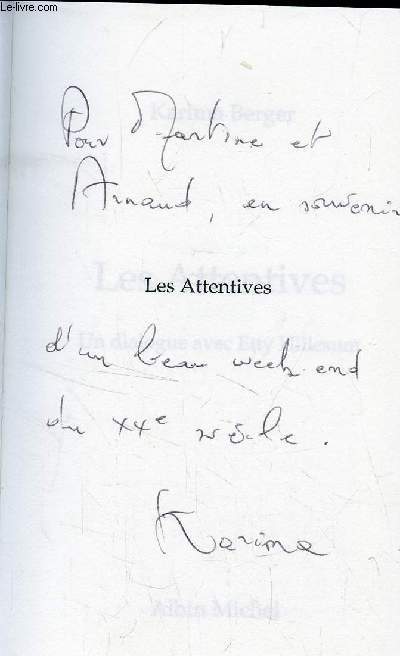 Le-livre.com
Karima Berger
Pour Martine et
Arnaud, en souvenir
Les Attentives
Les Attentives
Un dialogue avec Etty Hillesum
d'un beau week-end
du XXe siècle.
Karima
Albin Michel